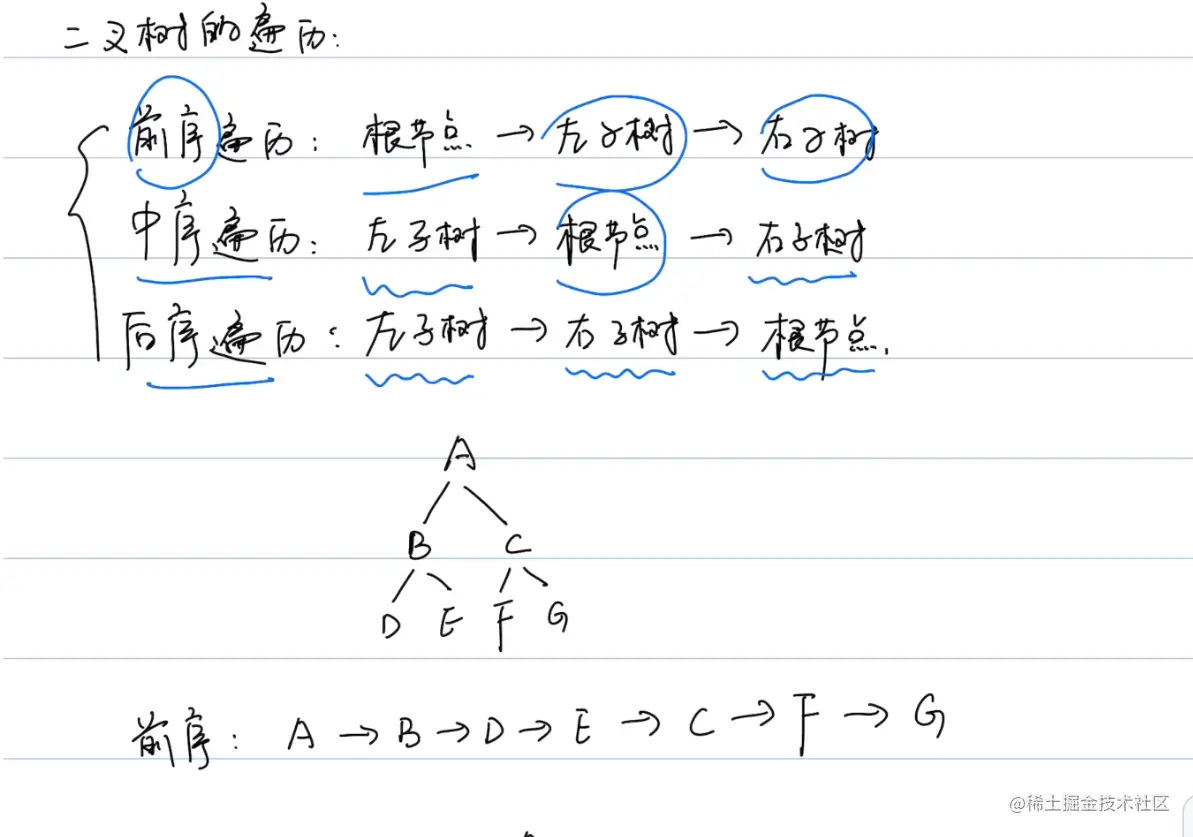 二叉树的遍历:
前序遍历: 根节点 → 左子树 → 右子树
中序遍历: 左子树 → 根节点 → 右子树
后序遍历: 左子树 → 右子树 → 根节点.
A
B C
D E F G
前序: A → B → D → E → C → F → G
@稀土掘金技术社区